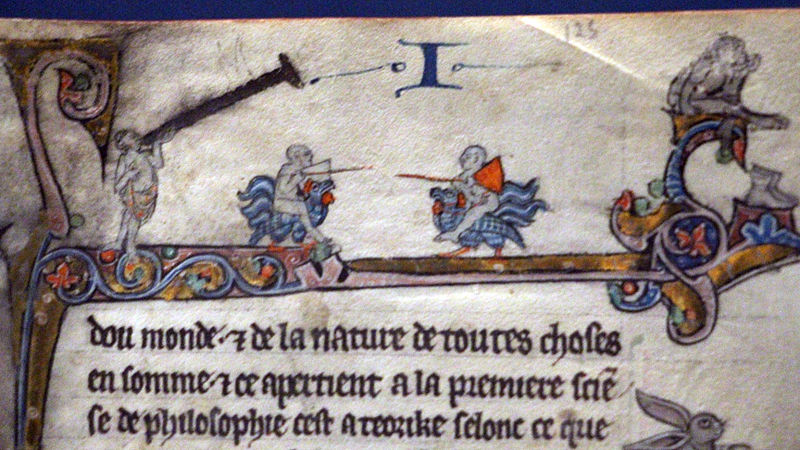 123
I
dou monde · ⁊ de la nature de toutes choses
en somme · ⁊ ce apertient a la premiere sciē
se de philosophie cest a teorike selonc ce que